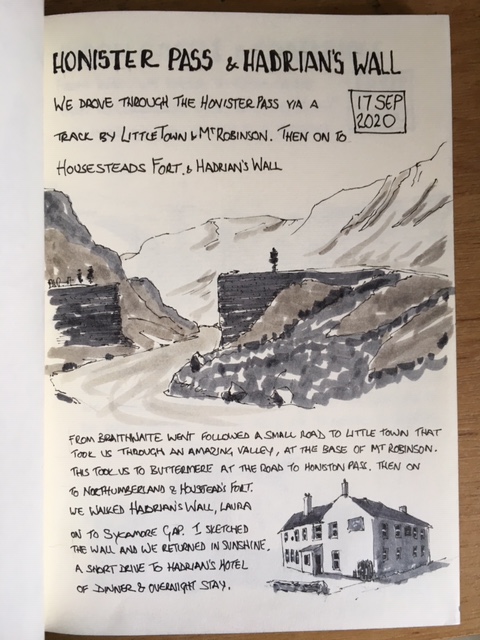 HONISTER PASS & HADRIAN'S WALL
WE DROVE THROUGH THE HONISTER PASS VIA A
17 SEP
2020
TRACK BY LITTLE TOWN & MT ROBINSON. THEN ON TO
HOUSESTEADS FORT. & HADRIAN'S WALL
FROM BRAITHWAITE WENT FOLLOWED A SMALL ROAD TO LITTLE TOWN THAT
TOOK US THROUGH AN AMAZING VALLEY, AT THE BASE OF MT ROBINSON.
THIS TOOK US TO BUTTERMERE AT THE ROAD TO HONISTON PASS. THEN ON
TO NORTHUMBERLAND & HOUSTEAD'S FORT.
WE WALKED HADRIAN'S WALL, LAURA
ON TO SYCAMORE GAP. I SKETCHED
THE WALL AND WE RETURNED IN SUNSHINE.
A SHORT DRIVE TO HADRIAN'S HOTEL
OF DINNER & OVERNIGHT STAY.